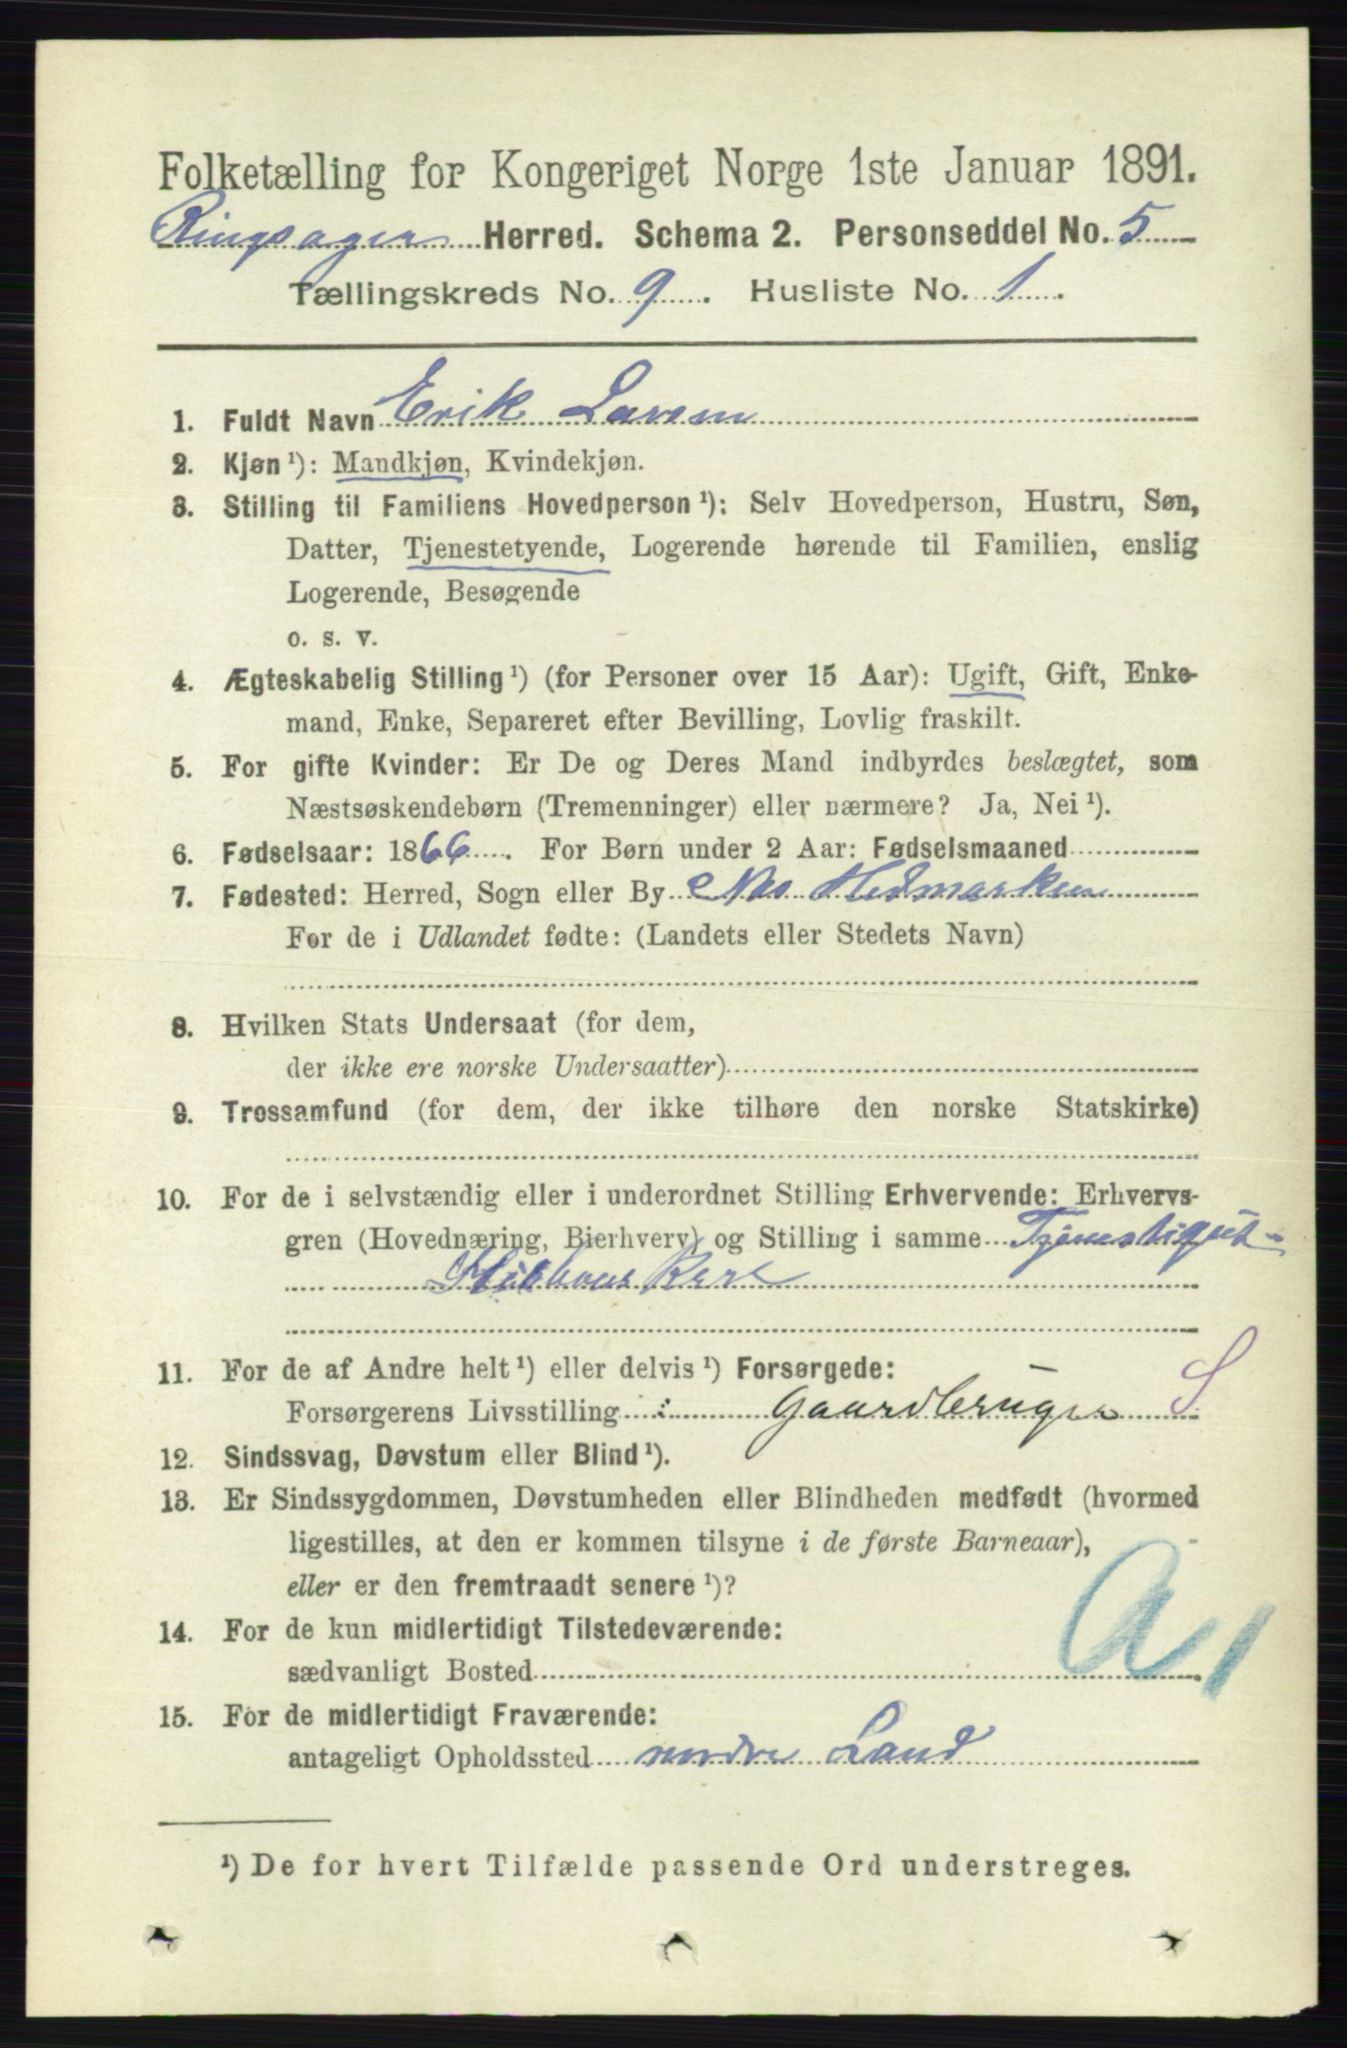 Folketælling for Kongeriget Norge 1ste Januar 1891.
Ringsager Herred. Schema 2. Personseddel No. 5
Tællingskreds No. 9. Husliste No. 1.
1. Fuldt Navn Erik Larsen
2. Kjøn ¹): Mandkjøn, Kvindekjøn.
3. Stilling til Familiens Hovedperson ¹): Selv Hovedperson, Hustru, Søn,
Datter, Tjenestetyende, Logerende hørende til Familien, enslig
Logerende, Besøgende
o. s. v.
4. Ægteskabelig Stilling ¹) (for Personer over 15 Aar): Ugift, Gift, Enke-
mand, Enke, Separeret efter Bevilling, Lovlig fraskilt.
5. For gifte Kvinder: Er De og Deres Mand indbyrdes beslægtet, som
Næstsøskendebørn (Tremenninger) eller nærmere? Ja, Nei ¹).
6. Fødselsaar: 1866. For Børn under 2 Aar: Fødselsmaaned
7. Fødested: Herred, Sogn eller By Nes Hedmarken
For de i Udlandet fødte: (Landets eller Stedets Navn)
8. Hvilken Stats Undersaat (for dem,
der ikke ere norske Undersaatter)
9. Trossamfund (for dem, der ikke tilhøre den norske Statskirke)
10. For de i selvstændig eller i underordnet Stilling Erhvervende: Erhvervs-
gren (Hovednæring, Bierhverv) og Stilling i samme Tjenestegut
11. For de af Andre helt ¹) eller delvis ¹) Forsørgede: S
Forsørgerens Livsstilling : Gaardbruger
12. Sindssvag, Døvstum eller Blind ¹).
13. Er Sindssygdommen, Døvstumheden eller Blindheden medfødt (hvormed
ligestilles, at den er kommen tilsyne i de første Barneaar),
eller er den fremtraadt senere ¹)?
14. For de kun midlertidigt Tilstedeværende:
sædvanligt Bosted
15. For de midlertidigt Fraværende:
antageligt Opholdssted nordre Land
¹) De for hvert Tilfælde passende Ord understreges.